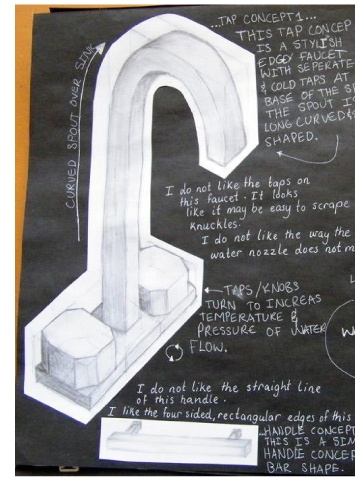 ...TAP CONCEPT 1...
THIS TAP CONCEP
IS A STYLISH
EDGY FAUCET
WITH SEPERATE
& COLD TAPS AT
BASE OF THE SP
THE SPOUT IS
LONG CURVED &
SHAPED.
CURVED SPOUT OVER SINK
I do not like the taps on
this faucet. It looks
like it may be easy to scrape
knuckles.
I do not like the way the
water nozzle does not m
TAPS/KNOBS
TURN TO INCREAS
TEMPERATURE &
PRESSURE OF WATER
FLOW.
I do not like the straight line
of this handle.
I like the four sided, rectangular edges of this
...HANDLE CONCEPT
THIS IS A SIM
HANDLE CONCEP
BAR SHAPE.